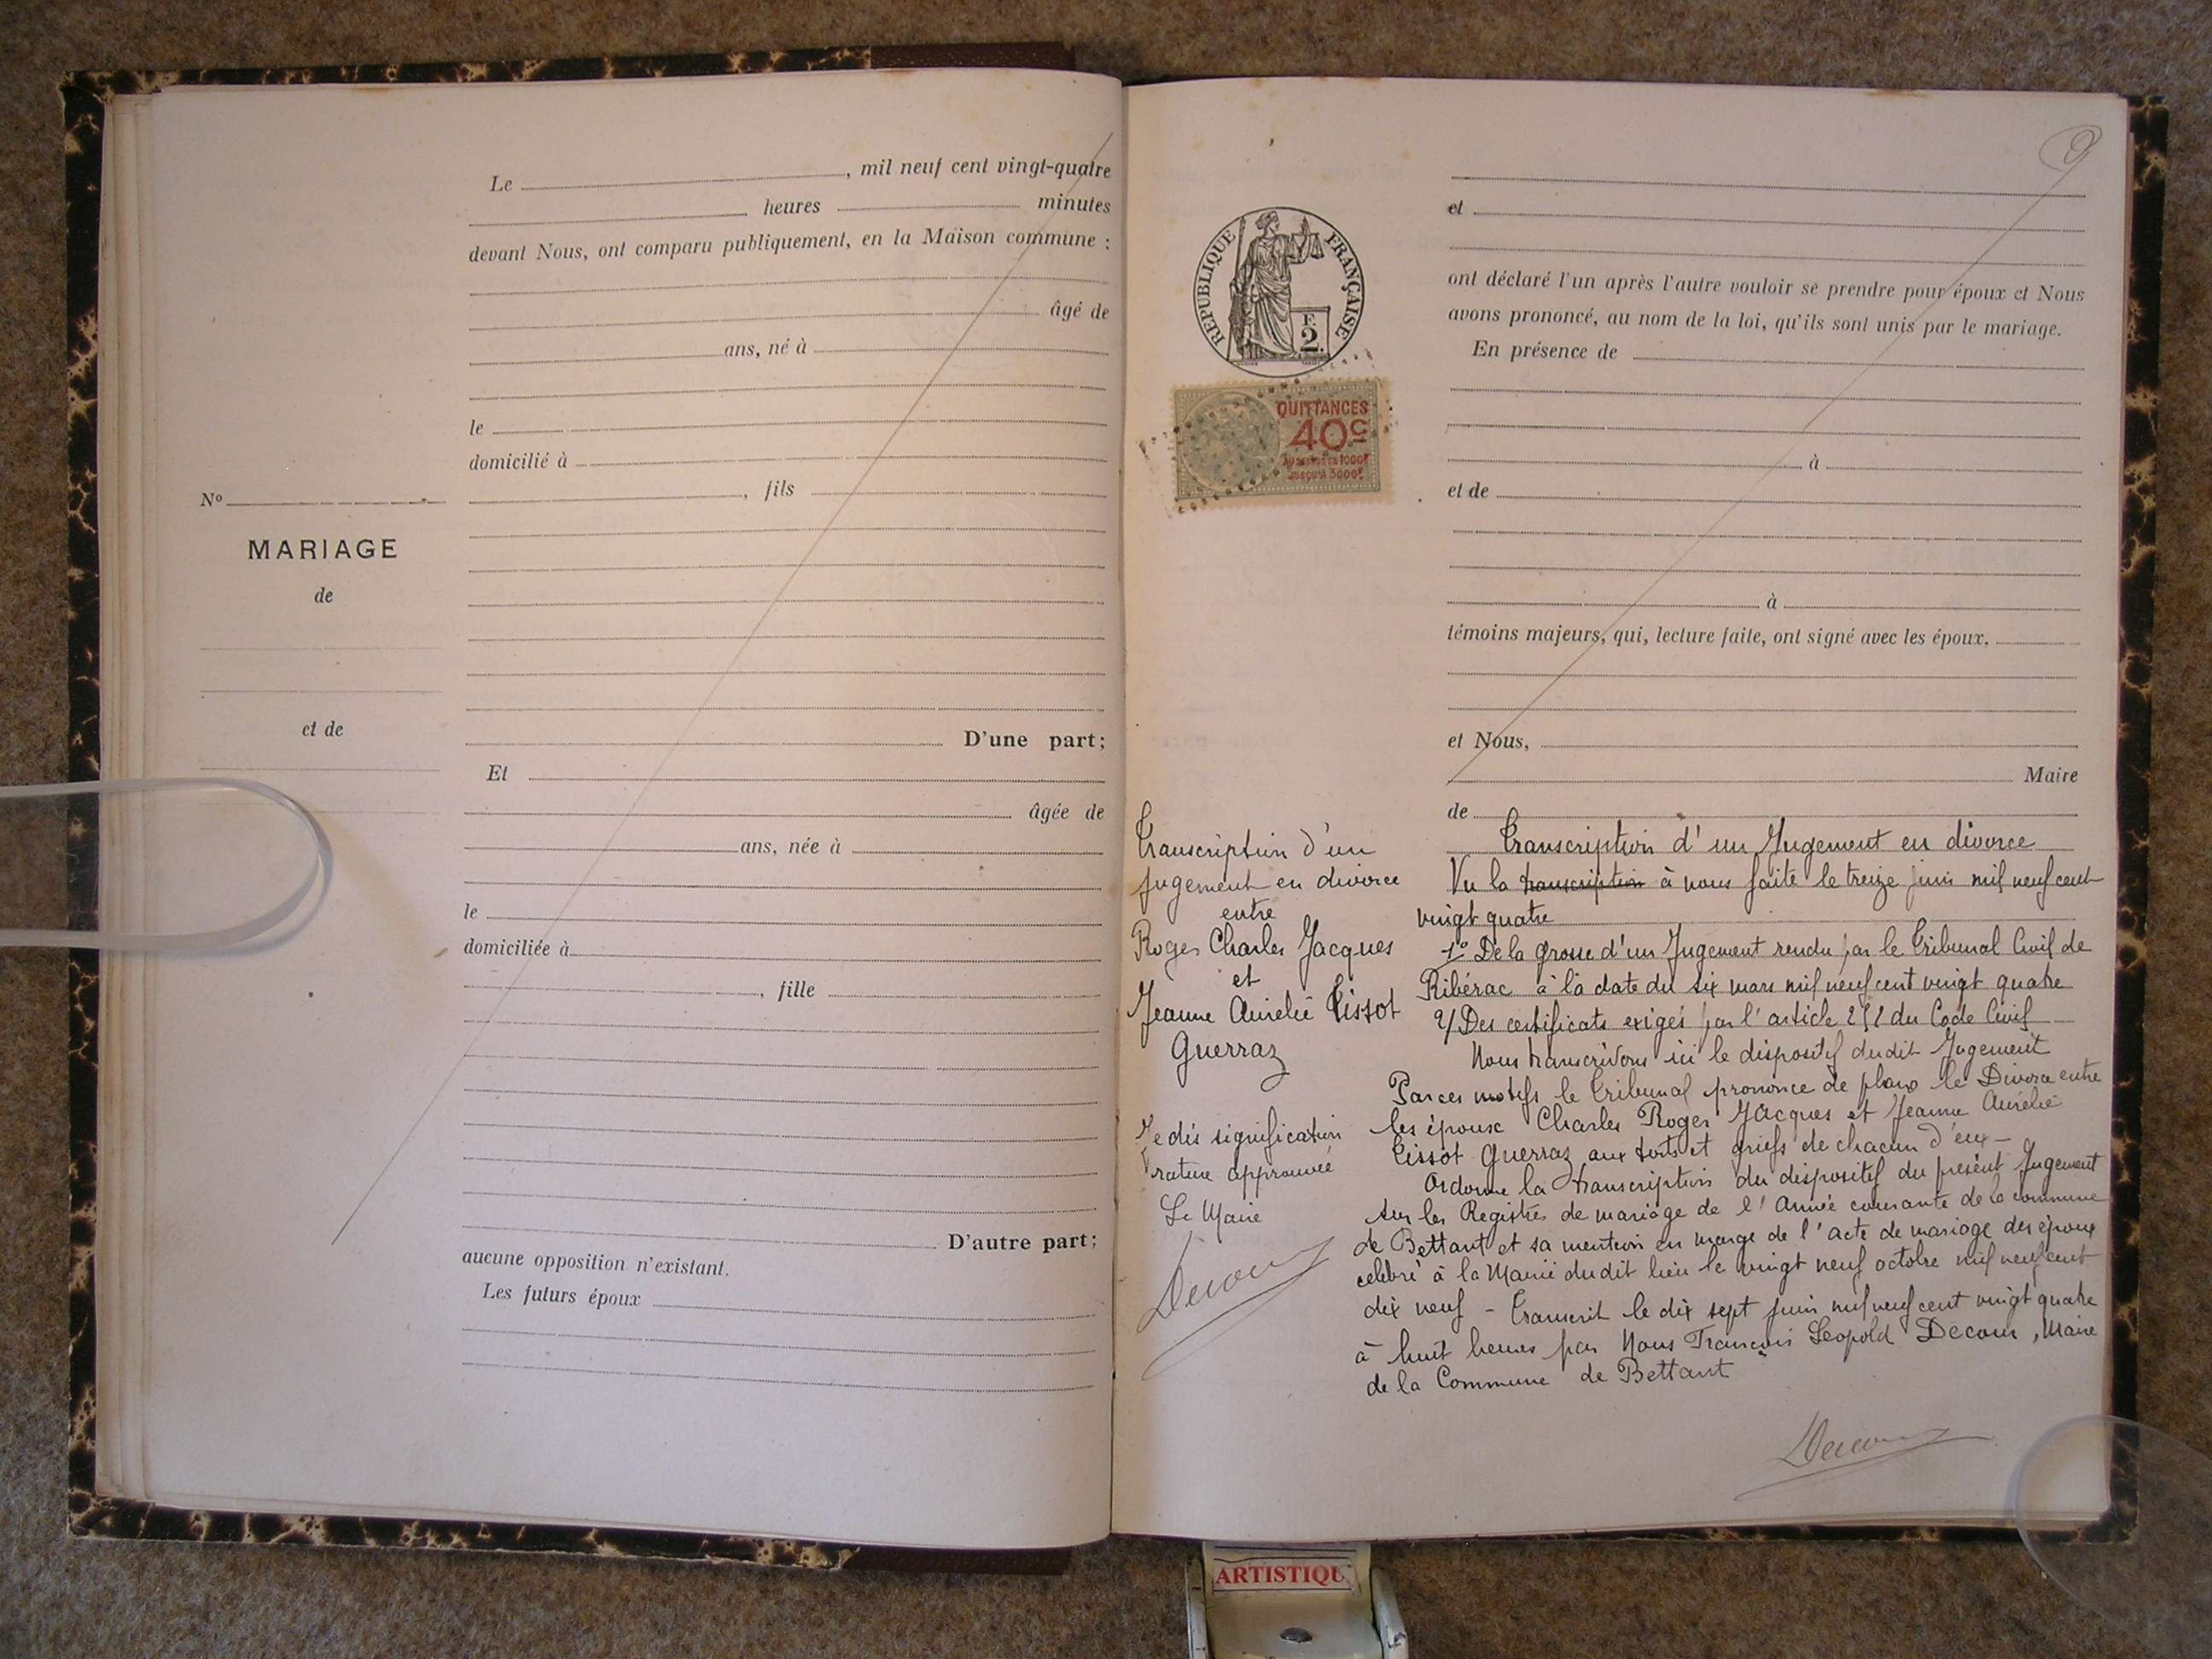 Le , mil neuf cent vingt-quatre
heures minutes
devant Nous, ont comparu publiquement, en la Maison commune :
âgé de
ans, né à
le
domicilié à
, fils
No
MARIAGE
de
et de
D'une part;
Et
âgée de
ans, née à
le
domiciliée à
, fille
D'autre part;
aucune opposition n'existant.
Les futurs époux
9
et
ont déclaré l'un après l'autre vouloir se prendre pour époux et Nous
avons prononcé, au nom de la loi, qu'ils sont unis par le mariage.
En présence de
à
et de
à
témoins majeurs, qui, lecture faite, ont signé avec les époux.
et Nous,
Maire
de
RÉPUBLIQUE FRANÇAISE
F.
2.
QUITTANCES
40c
1000F
JUSQU'A 3000F
Transcription d'un
jugement en divorce
entre
Roger Charles Jacques
et
Jeanne Aurélie Tissot
Guerraz
Je dis signification
rature approuvée
Le Maire
Decour
Transcription d'un Jugement en divorce
Vu la transcription à nous faite le treize juin mil neuf cent
vingt quatre
1° De la grosse d'un Jugement rendu par le Tribunal Civil de
Ribérac à la date du six mars mil neuf cent vingt quatre
2/ Des certificats exigés par l'article 252 du Code Civil
Nous transcrivons ici le dispositif dudit Jugement
Par ces motifs le Tribunal prononce de plano le Divorce entre
les époux Charles Roger Jacques et Jeanne Aurélie
Tissot Guerraz aux torts et griefs de chacun d'eux -
Ordonne la transcription du dispositif du présent Jugement
sur les Registres de mariage de l'Année courante de la commune
de Bettant et sa mention en marge de l'acte de mariage des époux
célébré à la Mairie dudit lieu le vingt neuf octobre mil neuf cent
dix neuf - Transcrit le dix sept juin mil neuf cent vingt quatre
à huit heures par Nous François Léopold Decour, Maire
de la Commune de Bettant
Decour
ARTISTIQU